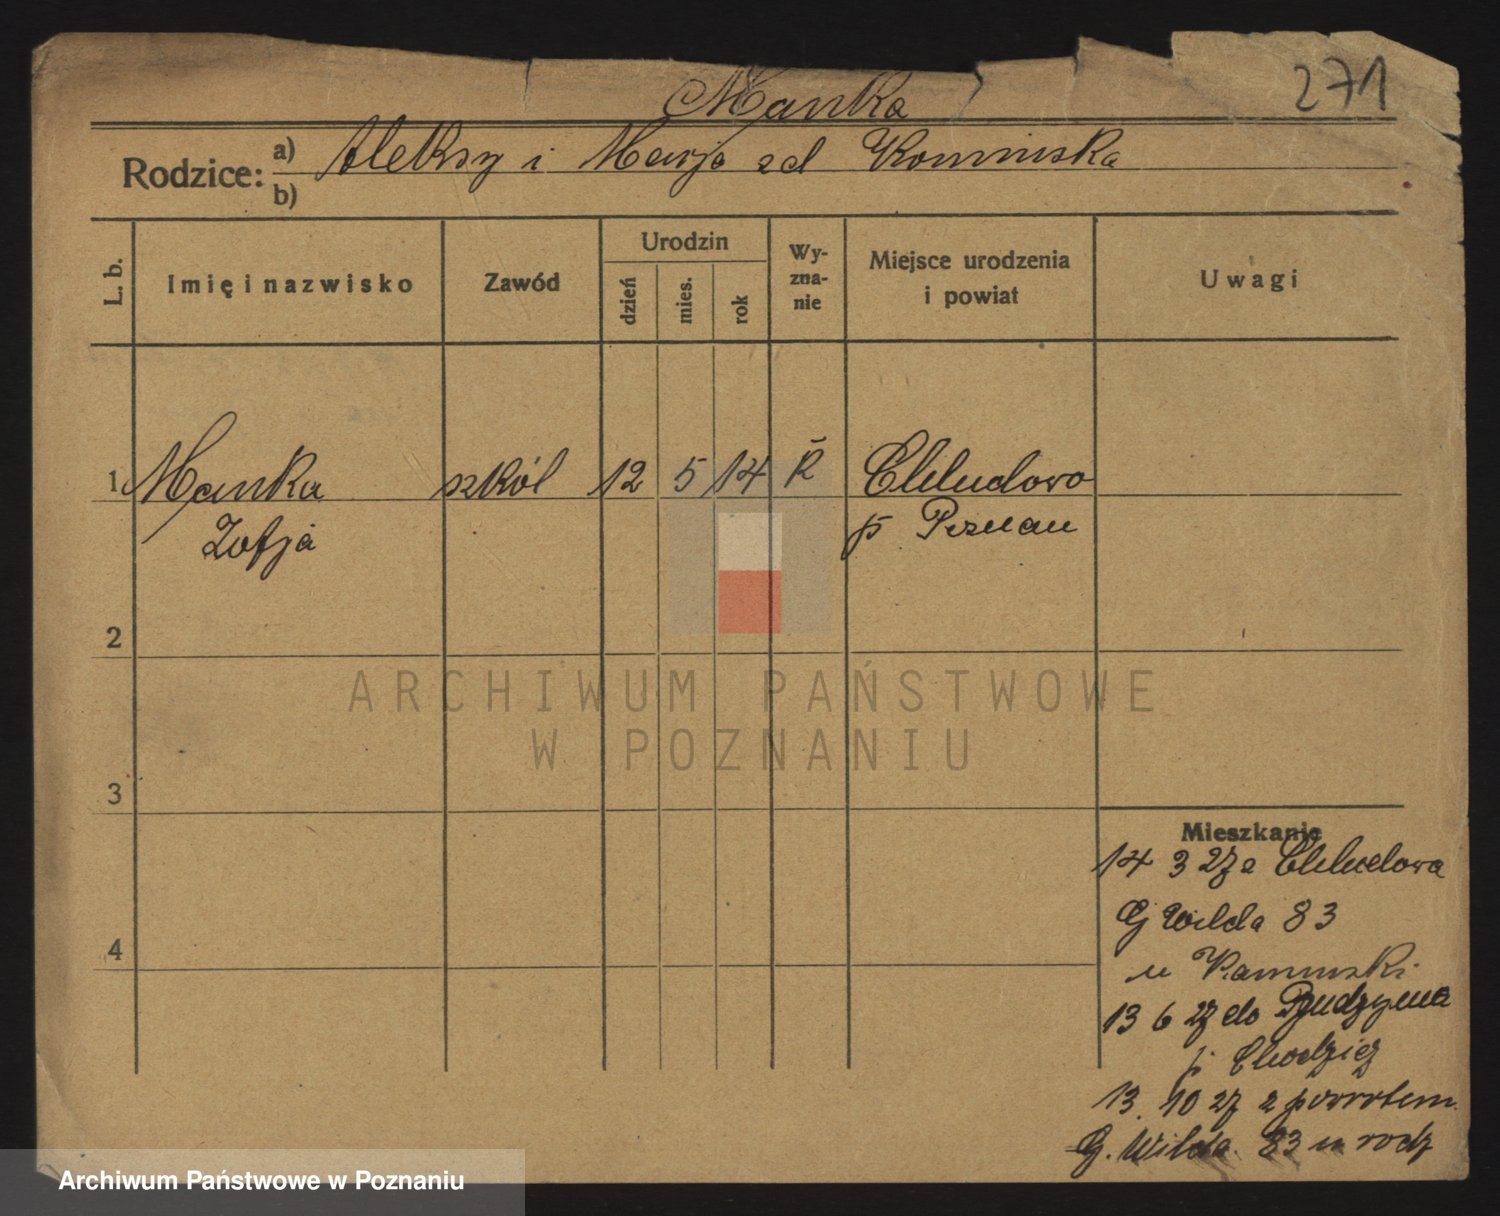 271
Manka
Rodzice: a) Aleksy i Marja zd Kominska
b)
L. b. Imię i nazwisko Zawód Urodzin dzień mies. rok Wy-zna-nie Miejsce urodzenia i powiat Uwagi
1 Manka szkól 12 5 14 K Chludowo
Zofja p Poznan
2
3
4
Mieszkanie
14 3 27 z Chludowa
G Wilda 83
u Kaminski
13 6 27 do Budzynia
p Chodzież
13. 10 27 z powrotem
G. Wilda. 83 u rodz
ARCHIWUM PAŃSTWOWE
W POZNANIU
Archiwum Państwowe w Poznaniu